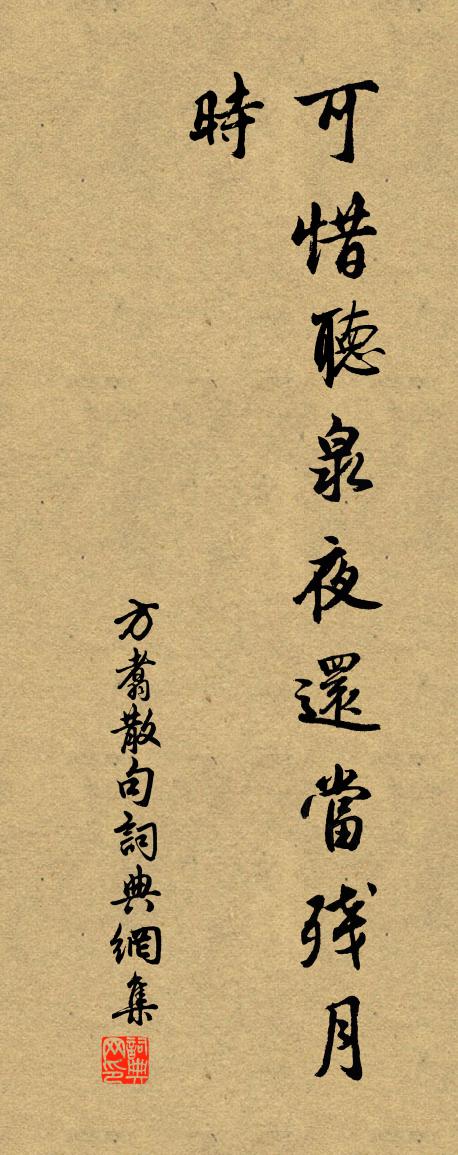 可惜聽泉夜還當残月
時
方翥散句詞典網集
詞典网印